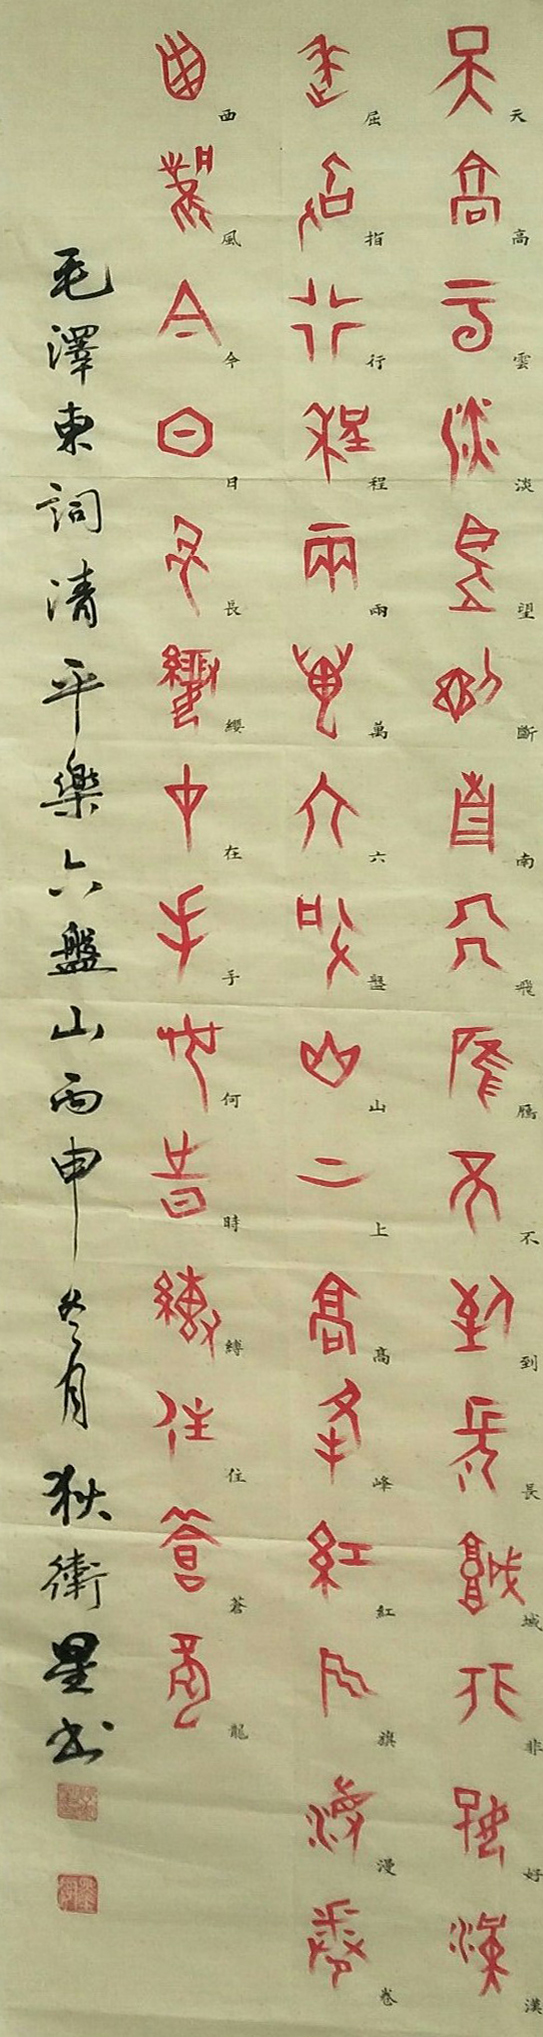 天高雲淡望斷南飛鴈不到長城非好漢
屈指行程兩萬六盤山上高峰紅旗漫卷
西風今日長纓在手何時縛住蒼龍
毛澤東詞清平樂六盤山丙申冬月狄衛星书